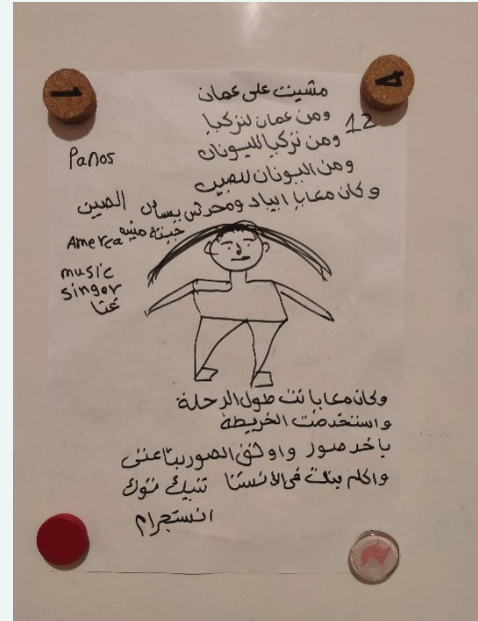 1
4
مشيت على عمان
ومن عمان لتركيا
12
ومن تركيا لليونان
Panos
ومن اليونان للصين
وكان معايا ايباد ومحدش بيسألن
الصين
Amerca
music
singer
غنا
وكان معايا نت طول الرحلة
واستخدمت الخريطة
ياخد صور واوثق الصور بتاعتى
واكلم بنات فى الانستا تيك توك
انستجرام